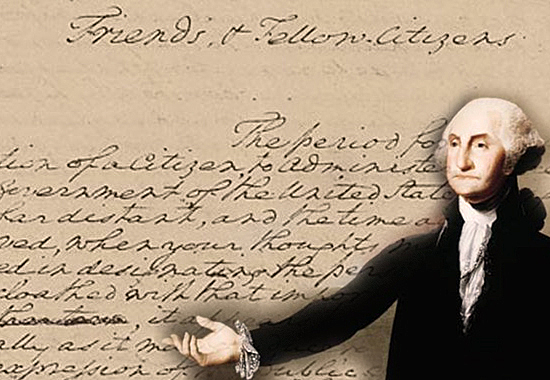 Friends, & Fellow-Citizens
The period fo
tion of a Citizen, to administe
overnment of the United Stat
far distant, and the time a
ved, when your thoughts
ed in designating the per
cloathed with that impor
it appea
ally as it m
expression of public